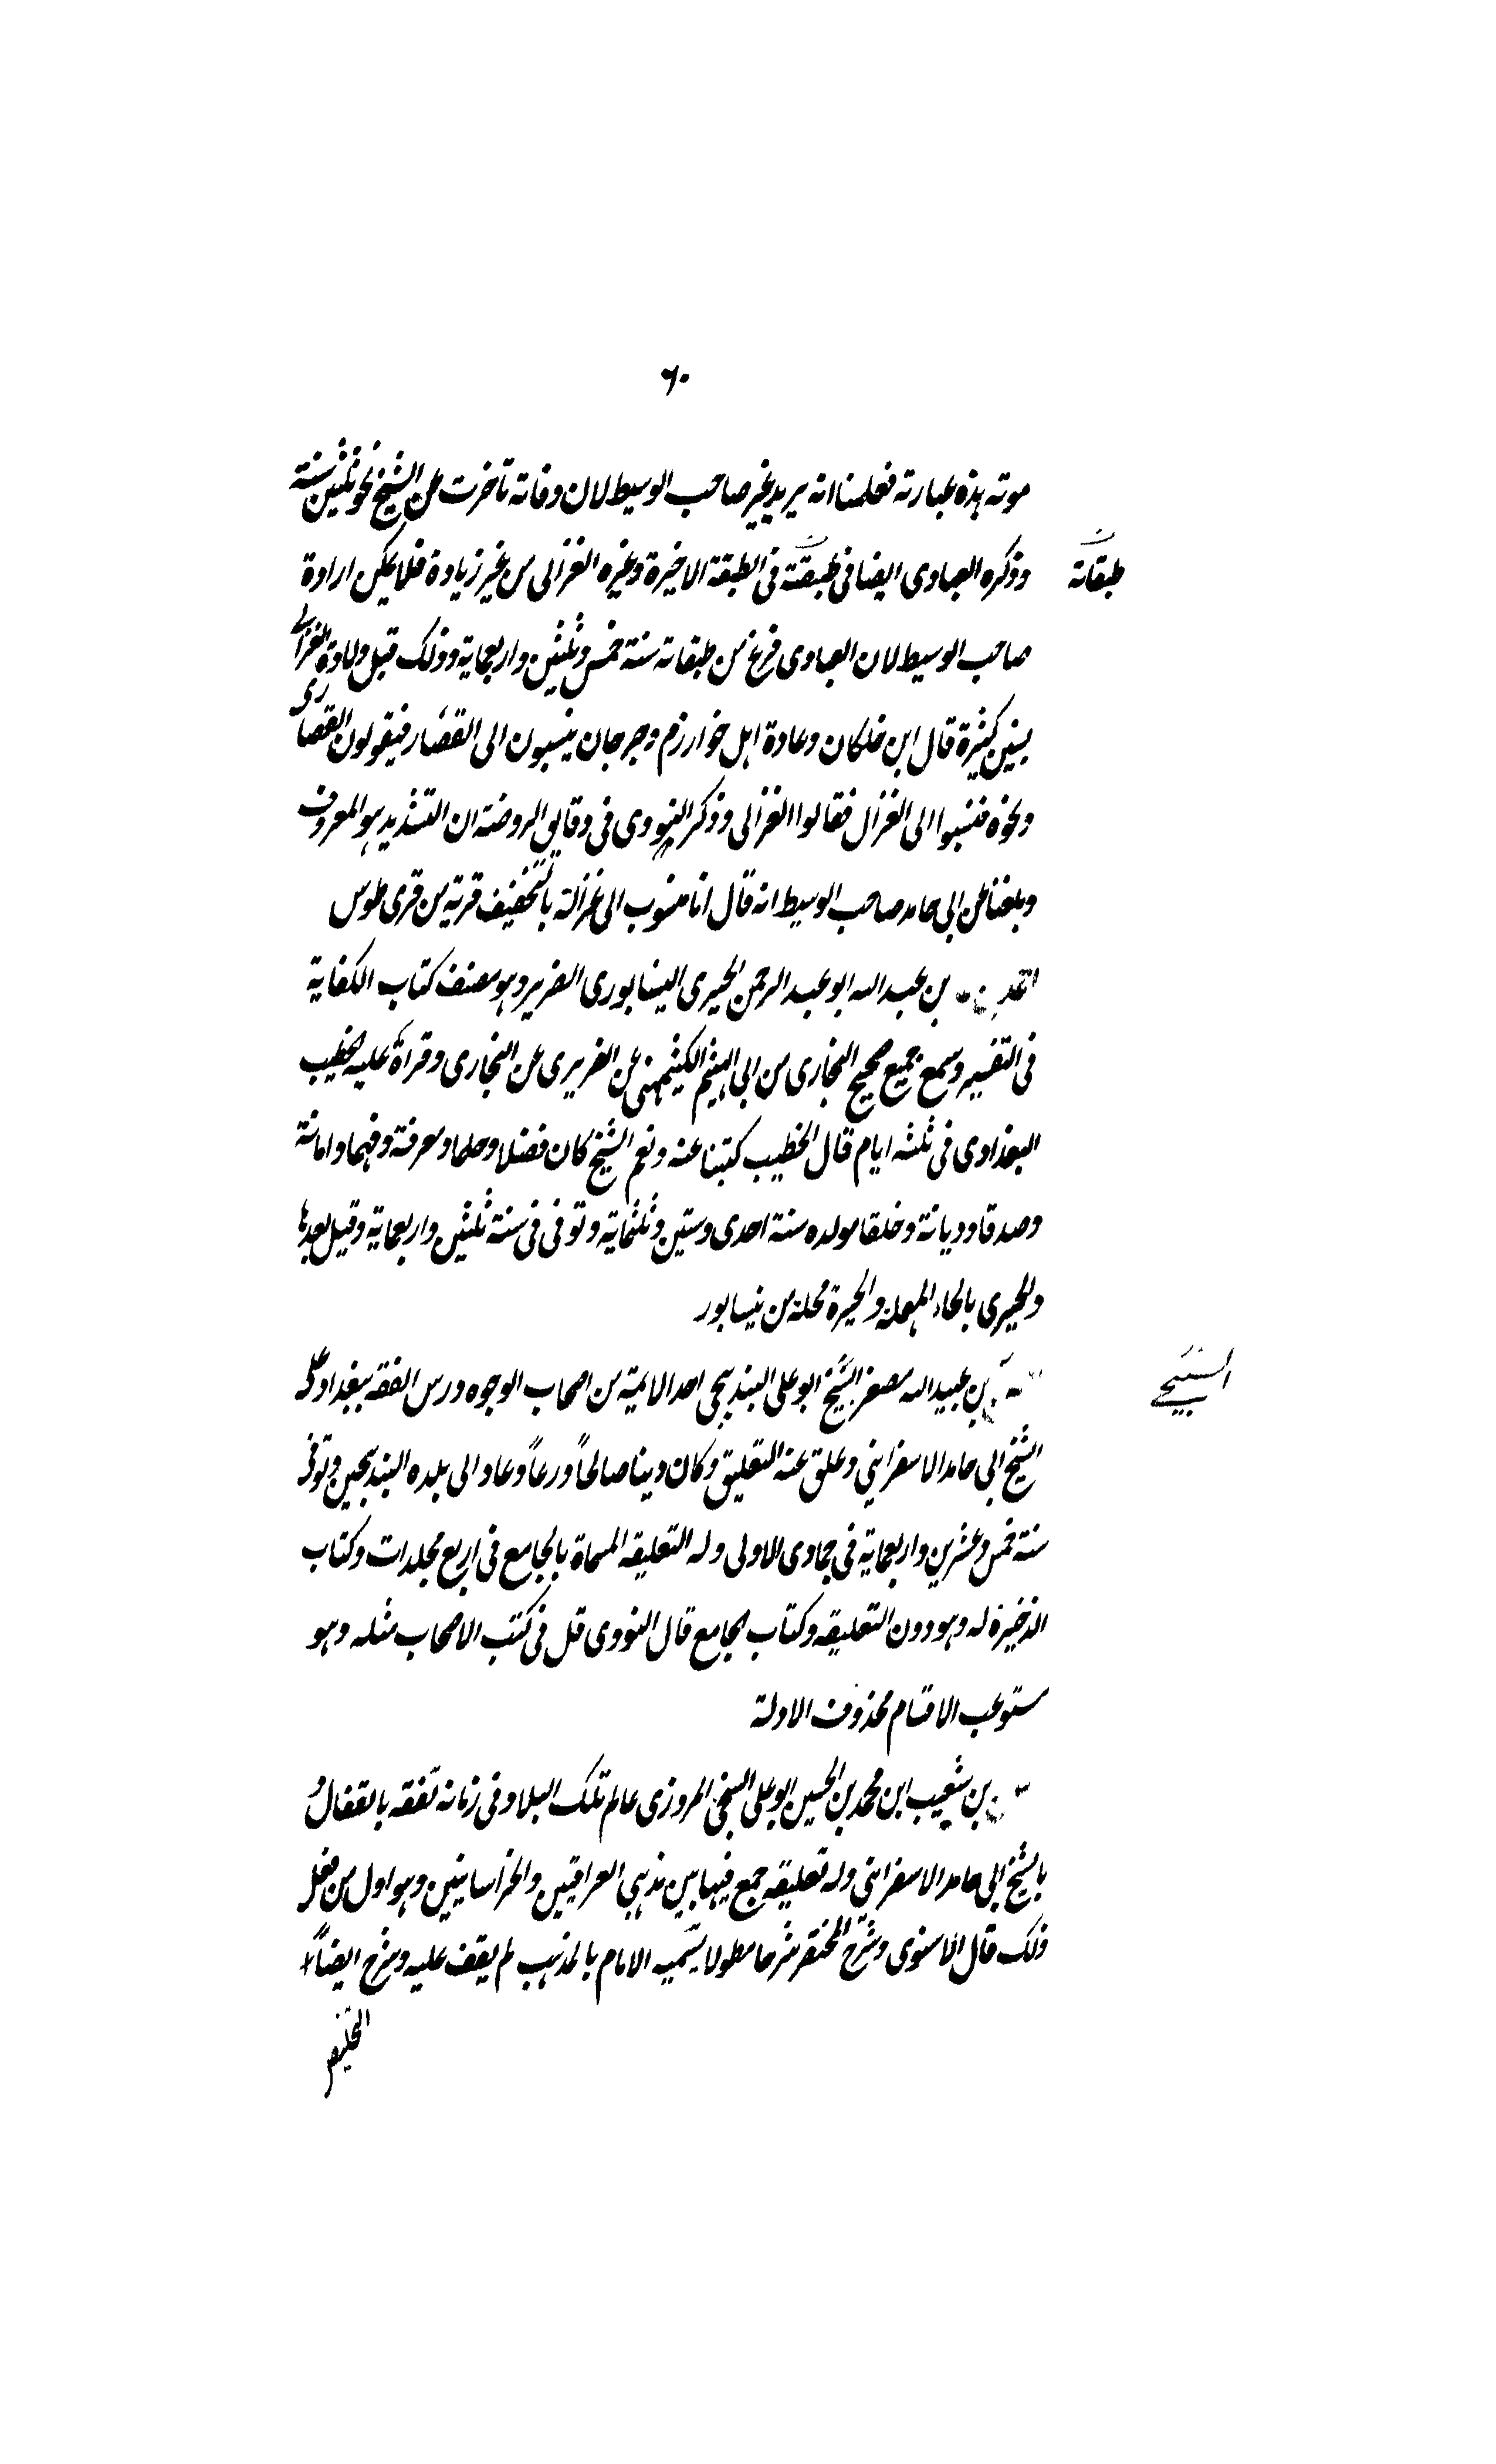 ٦٠
موته هذه عبارته فعلمنا انه يريد غير صاحب الوسيط لان وفاته تاخرت عن الشيخ نحو ثلثين سنة
وذكره العبادى ايضا فى طبقته فى الطبقة الاخيرة وغيره الغزالى من غير زيادة فلا يمكن ارادة
طبقاته
صاحب الوسيط لان العبادى فرغ من طبقاته سنة خمس وثلثين واربعماية وذلك قبل ولادة الغزالى
بسنين كثيرة قال ابن خلكان وعادة اهل خوارزم وجرجان ينسبون الى القصار فيقولون القصارى
ونحوه فنسبوا الى الغزال فقالوا الغزالى وذكر النووى فى دقايق الروضة ان التشديد هو المعروف
وبلغنا عن ابى حامد صاحب الوسيط انه قال انا منسوب الى غزالة بالتخفيف قرية من قرى طوس
بن عبد الله ابو عبد الرحمن الحيرى النيسابورى الضرير وهو مصنف كتاب الكفاية
فى التفسير وسمع جميع صحيح البخارى من ابى الهيثم الكشيمهنى عن الفربرى عن البخارى وقراه عليه الخطيب
البغدادى فى ثلثة ايام قال الخطيب كتبنا عنه ونعم الشيخ كان فضلا وعلما ومعرفة وفهما وامانة
وصدقا وديانة وخلقا مولده سنة احدى وستين وثلثماية وتوفى فى سنة ثلثين واربعماية وقيل بعدها
والحيرى بالحاء المهملة والحيرة محلة من نيسابور
بن عبيد الله مصغر الشيخ ابو على البندنيجى احد الايمة من اصحاب الوجوه درس الفقه ببغداد على
الشيخ ابى حامد الاسفراينى وعلق عنه التعليق وكان دينا صالحاً ورعاً وعاد الى بلده البندنيجين وتوفى
سنة خمس وعشرين واربعماية فى جمادى الاولى وله التعليقه المسماة بالجامع فى اربع مجلدات وكتاب
الذخيرة له وهو دون التعليقه وكتاب الجامع قال النووى قل فى كتب الاصحاب مثله وهو
مستوعب الاقسام محذوف الادلة
بن شعيب ابن محمد بن الحسين ابو على السنجى المروزى عالم تلك البلاد فى زمانه تفقه بالقفال و
بالشيخ ابى حامد الاسفراينى وله تعليقه جمع فيها بين مذهبى العراقيين والخراسانيين وهو اول من فعل
ذلك قال الاسنوى وشرح المختصر شرحا مطولا يسميه الامام بالمذهب لم يقف عليه وشرح ايضاً